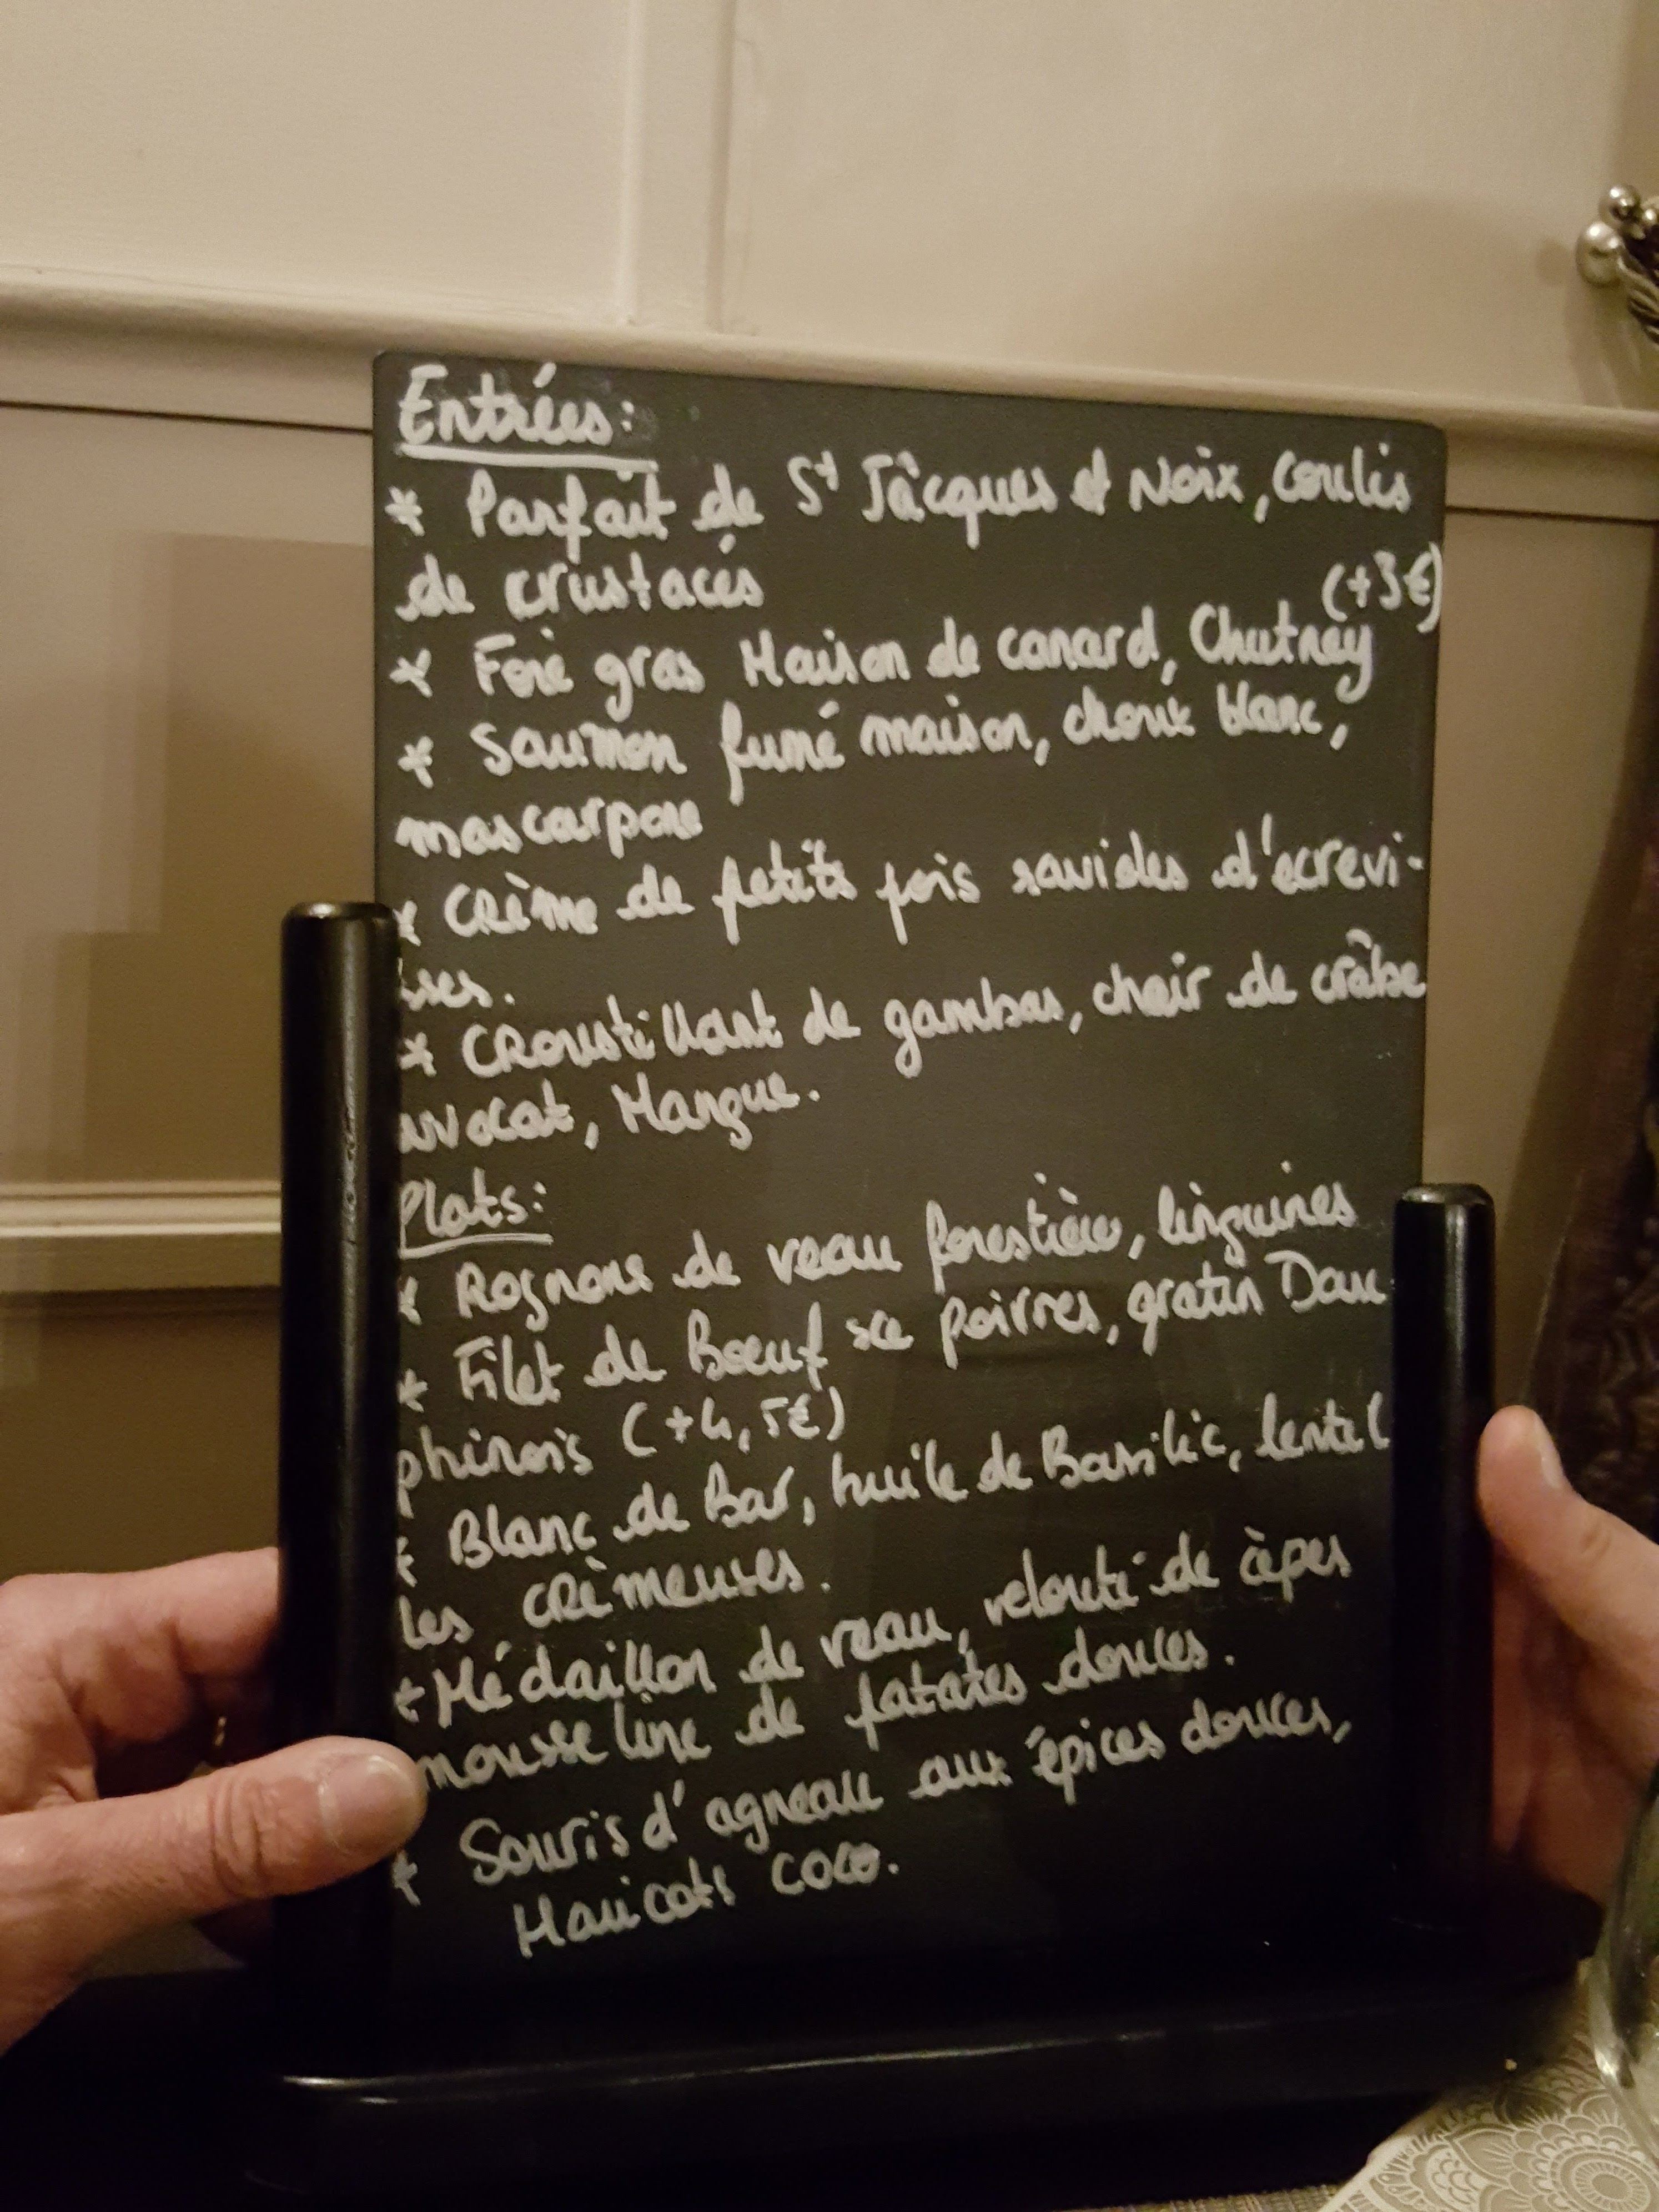 Entrées:
* Parfait de St Jâcques et Noix, coulis
de crustacés
(+3€)
* Foie gras Maison de canard, Chutney
* Saumon fumé maison, choux blanc,
mascarpone
* Crème de petits pois ravioles d'écrevi-
sses.
* Croustillant de gambas, chair de crâbe
avocat, Mangue.
Plats:
* Rognons de veau forestière, linguines
* Filet de Boeuf sce poivres, gratin Dau
phinois (+4,5€)
* Blanc de Bar, huile de Basilic, lentil
les crèmeuses.
* Médaillon de veau, velouté de cèpes
mousseline de patates douces.
* Souris d'agneau aux épices douces,
Haricots coco.